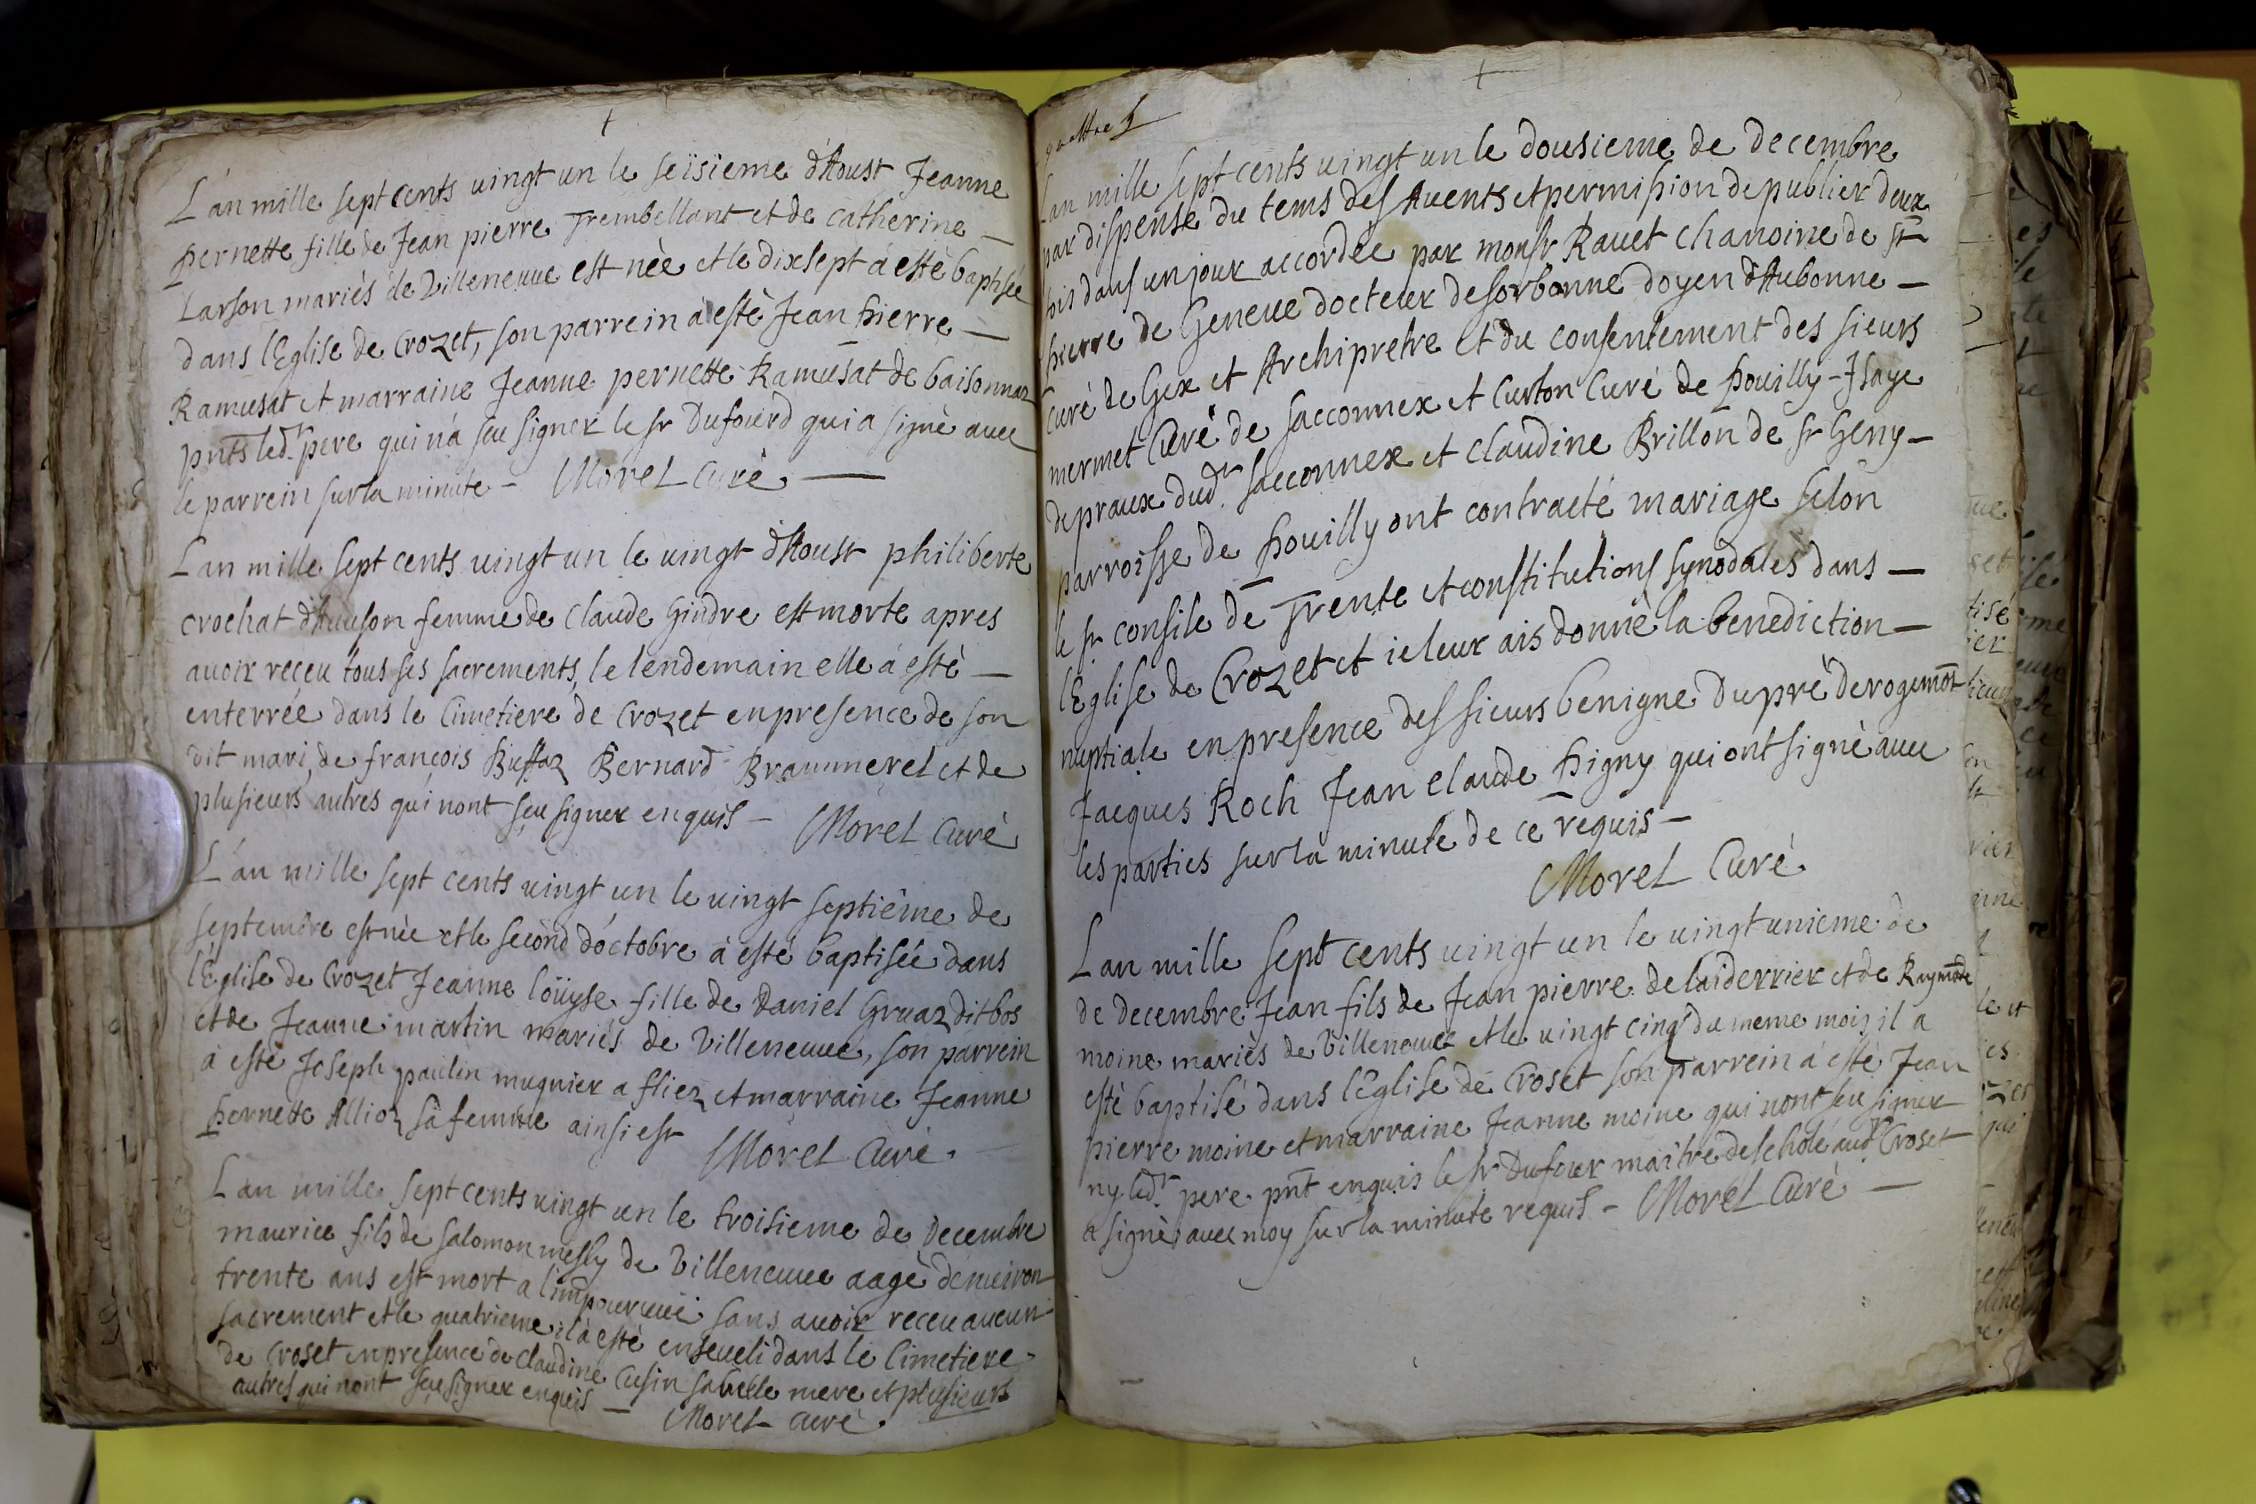 +
L'an mille sept cents vingt un le seïsieme d'Aoust Jeanne
pernette fille de Jean pierre Trembellant et de catherine —
Larson mariés de Villeneuue est née et le dixsept á esté baptisée
dans l'Eglise de Crozet, son parrein á esté Jean pierre —
Ramusat et marraine Jeanne pernette Ramusat de baisonnaz
pnts led. pere qui n'á sçu signer le sr Dufourd qui a signé avec
le parrein sur la minute - Morel Curé —
L'an mille sept cents vingt un le vingt d'Aoust philiberte
crochat femme de Claude Gindre est morte apres
auoir receu tous ses sacrements, le lendemain elle á esté —
enterrée dans le Cimetiere de Crozet en presence de son
dit mari, de françois Buffaz Bernard Braunnerel et de
plusieurs autres qui nont sçu signer enquis - Morel Curé
L'an mille sept cents vingt un le vingt septiême de
septembre est née et le second d'octobre á esté baptisée dans
l'Eglise de Crozet Jeanne loüyse fille de Daniel Gruaz dit bos
et de Jeanne martin mariés de Villeneuue, son parrein
á esté Joseph paulin mugnier a fliez et marraine Jeanne
pernette Allioz sa femme ainsi est Morel Curé.
L'an mille sept cents vingt un le troisieme de Decembre
maurice fils de salomon mesly de Villeneuue aagé denuiron
trente ans est mort a l'impourueüe sans auoir receu aucun
sacrement et le quatrieme il á esté enseueli dans le Cimetiere
de Croset en presence de Claudine Cusin sa belle mere et plusieurs
autres qui nont sçu signer enquis — Morel Curé.
+
quattre
Lan mille sept cents vingt un le dousieme de decembre
par dispense du tems des Auents et permission de publier deux
fois dans un jour accordée par monsr Rauet chanoine de St
pierre de Geneue docteur de sorbonne doyen d'Aubonne —
Curé de Gex et Archipretre et du consentement des sieurs
mermet Curé de sacconnex et Curton Curé de pouilly - Isaye
depraux dudt sacconnex et claudine Brillon de sr Geny —
parroisse de pouilly ont contracté mariage selon
le sr consile de Trente et constitutions synodales dans —
l'Eglise de Crozet et ie leur ais donné la benediction —
nuptiale en presence des sieurs benigne Dupré Derogemont
Jacques Roch Jean claude pigny qui ont signé avec
les parties sur la minute de ce requis —
Morel Curé
Lan mille sept cents vingt un le vingt unieme de
de decembre Jean fils de Jean pierre delaiderrier et de Raymonde
moine mariés de Villeneuue et le vingt cinq du meme mois il a
esté baptisé dans l'Eglise de Croset son parrein á esté Jean
pierre moine et marraine Jeanne moine qui nont sçu signer
ny ledt pere pnt enquis le sr Dufour maitre deschole audt Croset
a signé avec moy sur la minute requis - Morel Curé —